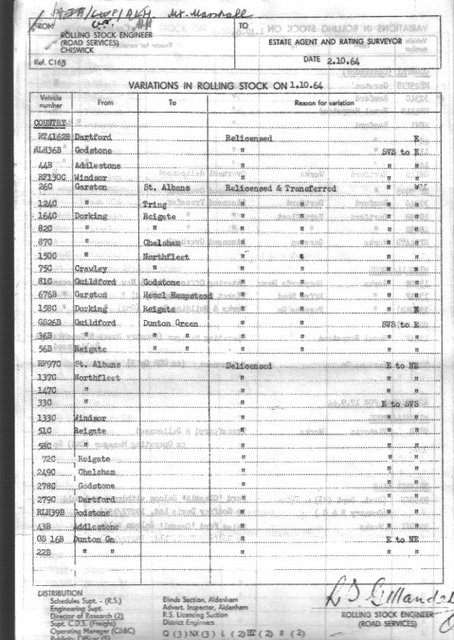 Mr. Marshall
FROM
ROLLING STOCK ENGINEER
(ROAD SERVICES)
CHISWICK
TO
ESTATE AGENT AND RATING SURVEYOR
Ref. C16B
DATE 2.10.64
VARIATIONS IN ROLLING STOCK ON 1.10.64
Vehicle number From To Reason for variation
COUNTRY
RT4162B Dartford Relicensed E
RLH36B Godstone " SVS to E
44B Addlestone " " "
RF130C Windsor " " "
26C Garston St. Albans Relicensed & Transferred " "
124C " Tring " " " "
164C Dorking Reigate " " "
82C " " " " "
87C " Chelsham " " " "
150C " Northfleet " " " "
75C Crawley " " " " "
81C Guildford Godstone " " " "
675B Garston Hemel Hempstead " " " "
158C Dorking Reigate " " E
GS26B Guildford Dunton Green " SVS to E
36B " " " " "
56B Reigate " " " "
RF97C St. Albans Delicensed E to NE
137C Northfleet " " "
147C " " " "
33C " " E to SVS
133C Windsor " " "
51C Reigate " " "
58C " " " "
72C Reigate " " "
249C Chelsham " " "
278C Godstone " " "
279C Dartford " " "
RLH39B Godstone " " "
43B Addlestone " " "
GS 16B Dunton Gn. " E to NE
22B " " " " "
DISTRIBUTION
Schedules Supt. - (R.S.)
Engineering Supt.
Director of Research (2)
Supt. C.D.S. (Freight)
Operating Manager (C)&(C)
Publicity Officer (2)
Blinds Section, Aldenham
Advert. Inspector, Aldenham
R.S. Licensing Section
District Engineers
ROLLING STOCK ENGINEER
(ROAD SERVICES)